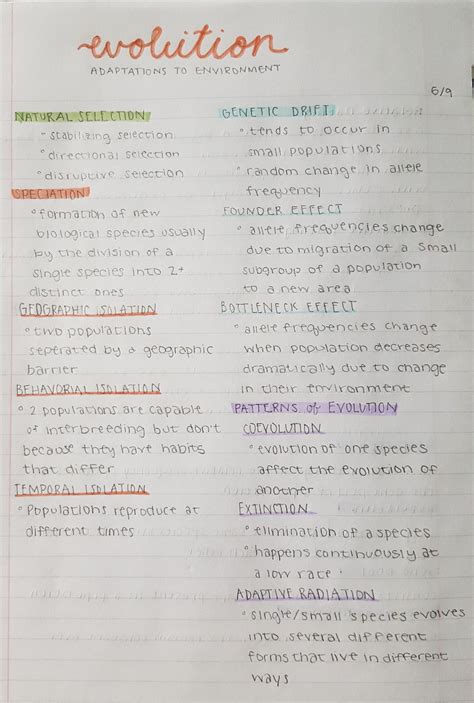 evolution
ADAPTATIONS TO ENVIRONMENT
6/9
NATURAL SELECTION
° stabilizing selection
° directional selection
° disruptive selection
SPECIATION
° formation of new
biological species usually
by the division of a
single species into 2+
distinct ones
GEOGRAPHIC ISOLATION
° two populations
seperated by a geographic
barrier
BEHAVORIAL ISOLATION
° 2 populations are capable
of interbreeding but don't
because they have habits
that differ
TEMPORAL ISOLATION
° Populations reproduce at
different times
GENETIC DRIFT
° tends to occur in
small populations
° random change in allele
frequency
FOUNDER EFFECT
° allele frequencies change
due to migration of a small
subgroup of a population
to a new area
BOTTLENECK EFFECT
° allele frequencies change
when population decreases
dramatically due to change
in their environment
PATTERNS of EVOLUTION
COEVOLUTION
° evolution of one species
affect the evolution of
another
EXTINCTION
° elimination of a species
° happens continuously at
a low rate
ADAPTIVE RADIATION
° single/small species evolves
into several different
forms that live in different
ways